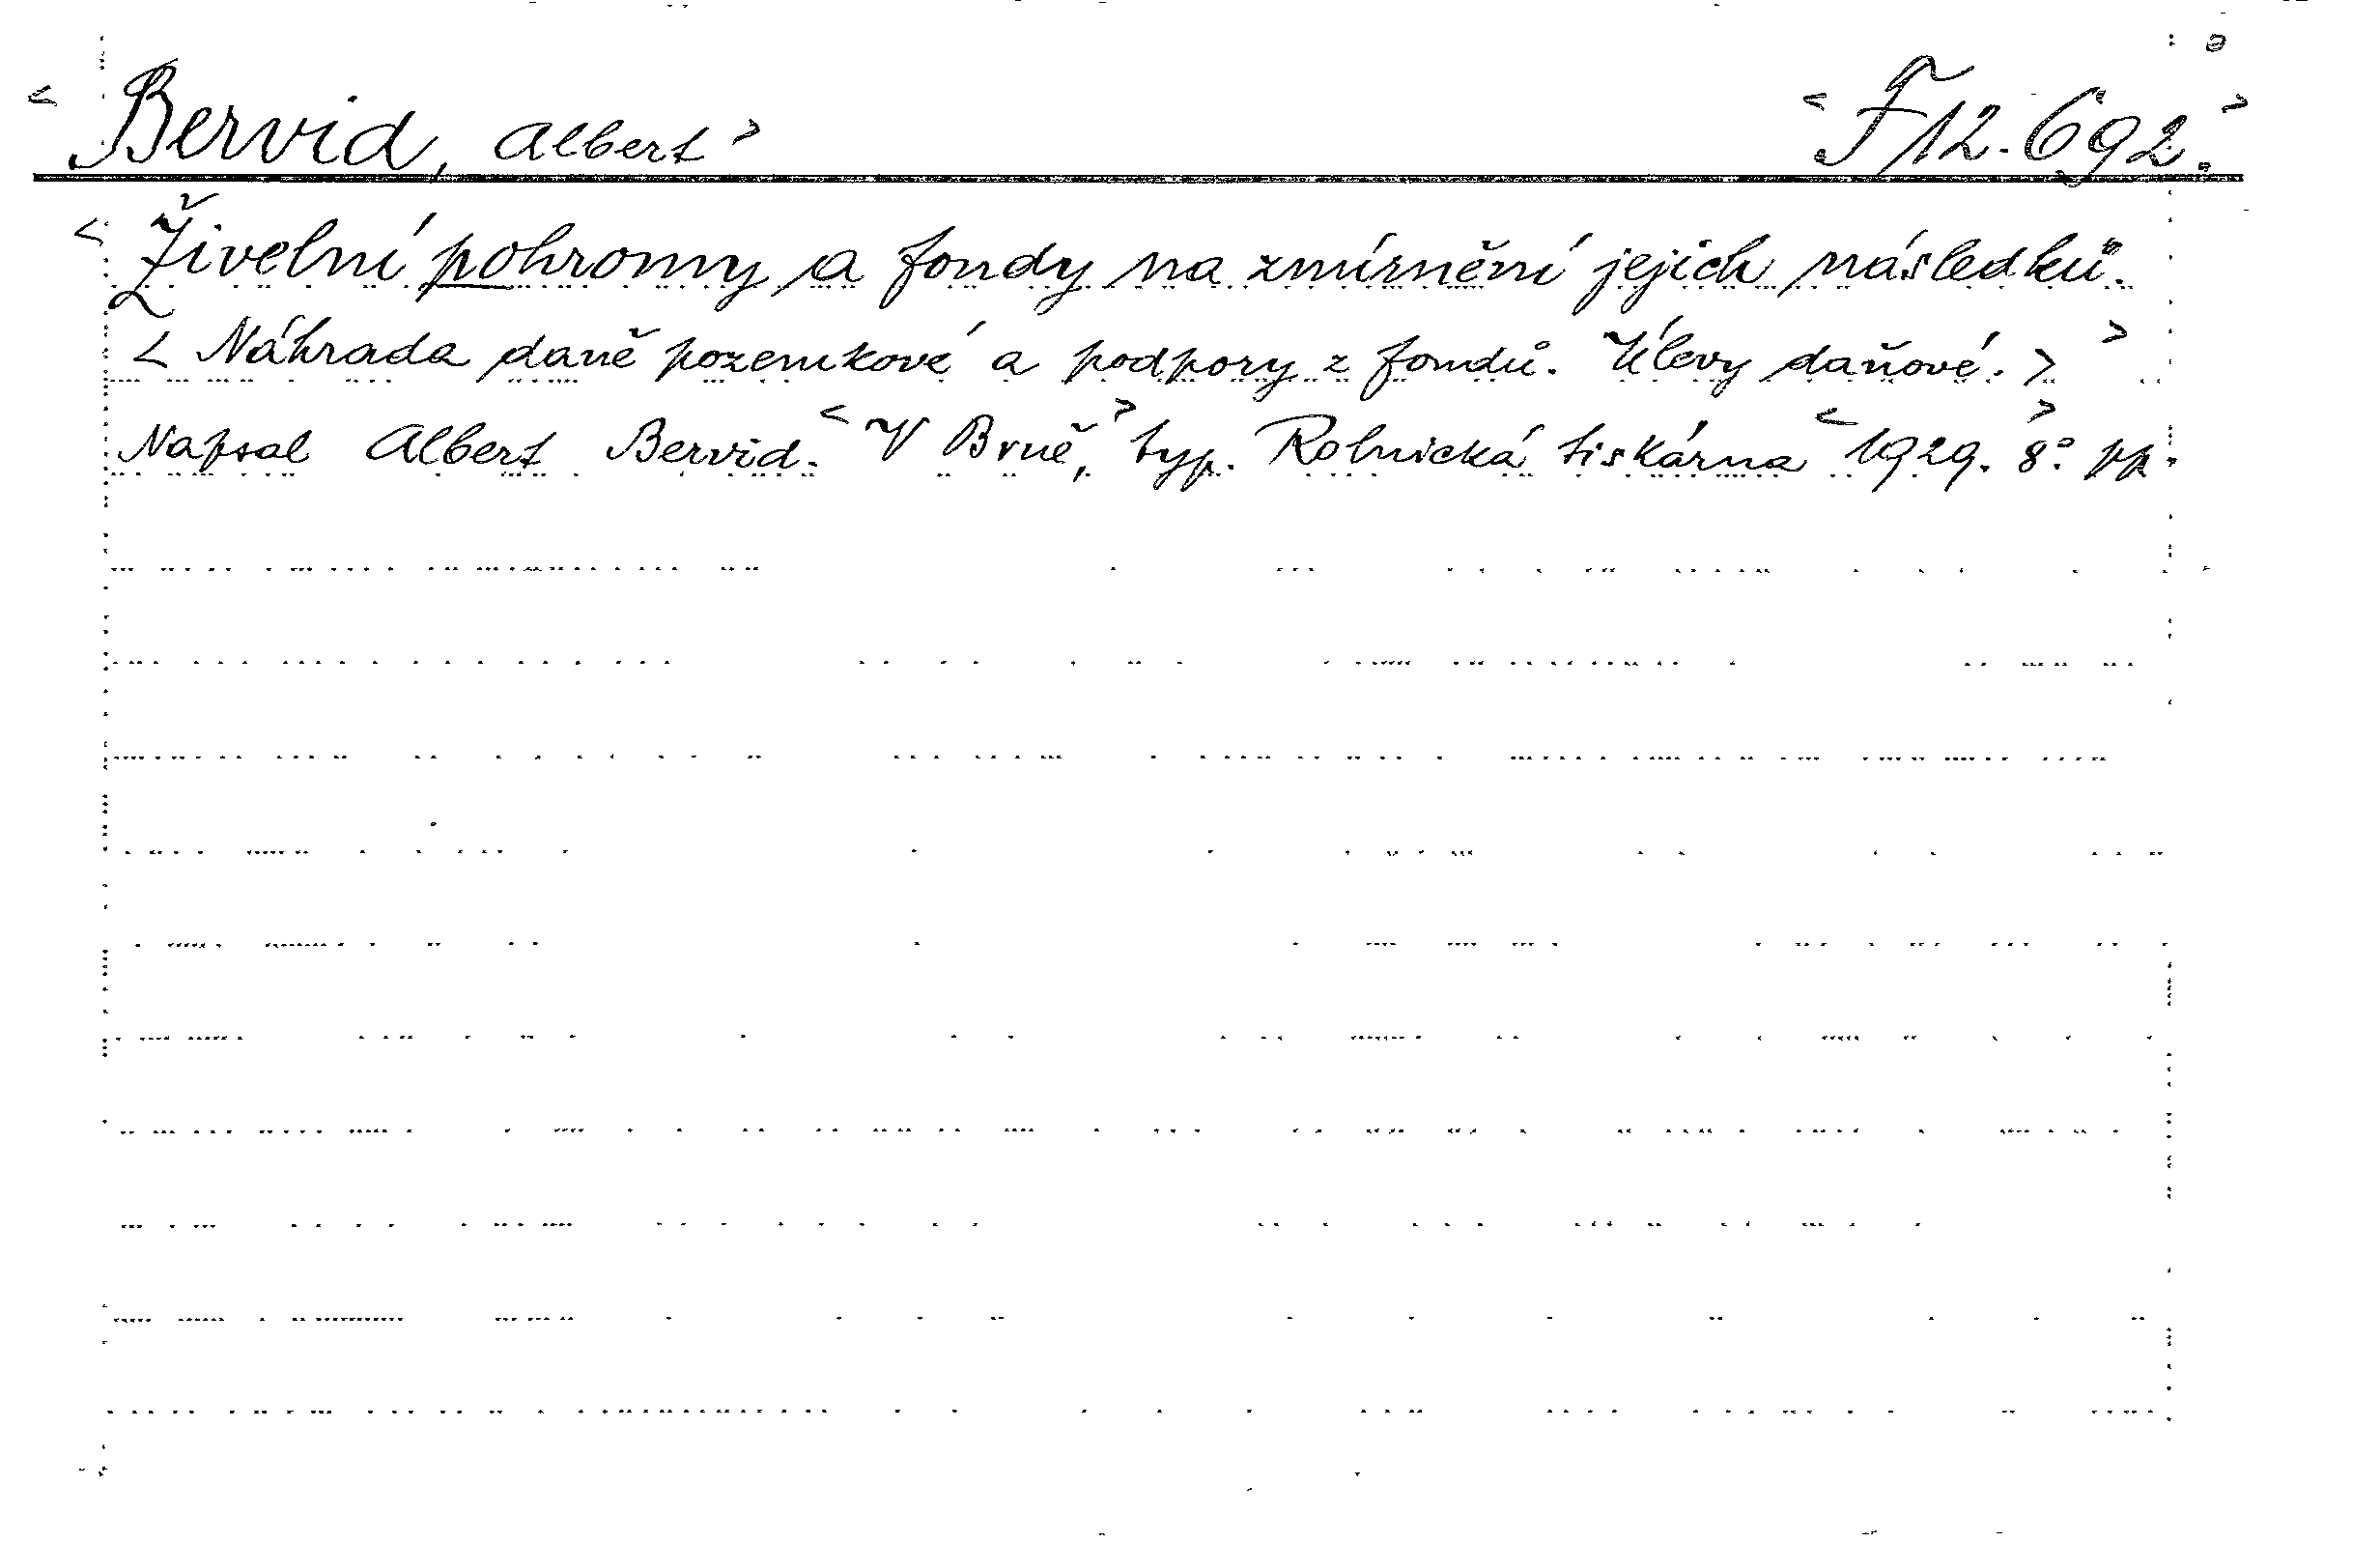 < Bervid, Albert > < F 12.692. >
< Živelní pohromy a fondy na zmírnění jejich následků.
< Náhrada daně pozemkové a podpory z fondů. Úlevy daňové. > >
Napsal Albert Bervid. < V Brně, > typ. Rolnická tiskárna < 1929. > 8°. pp.